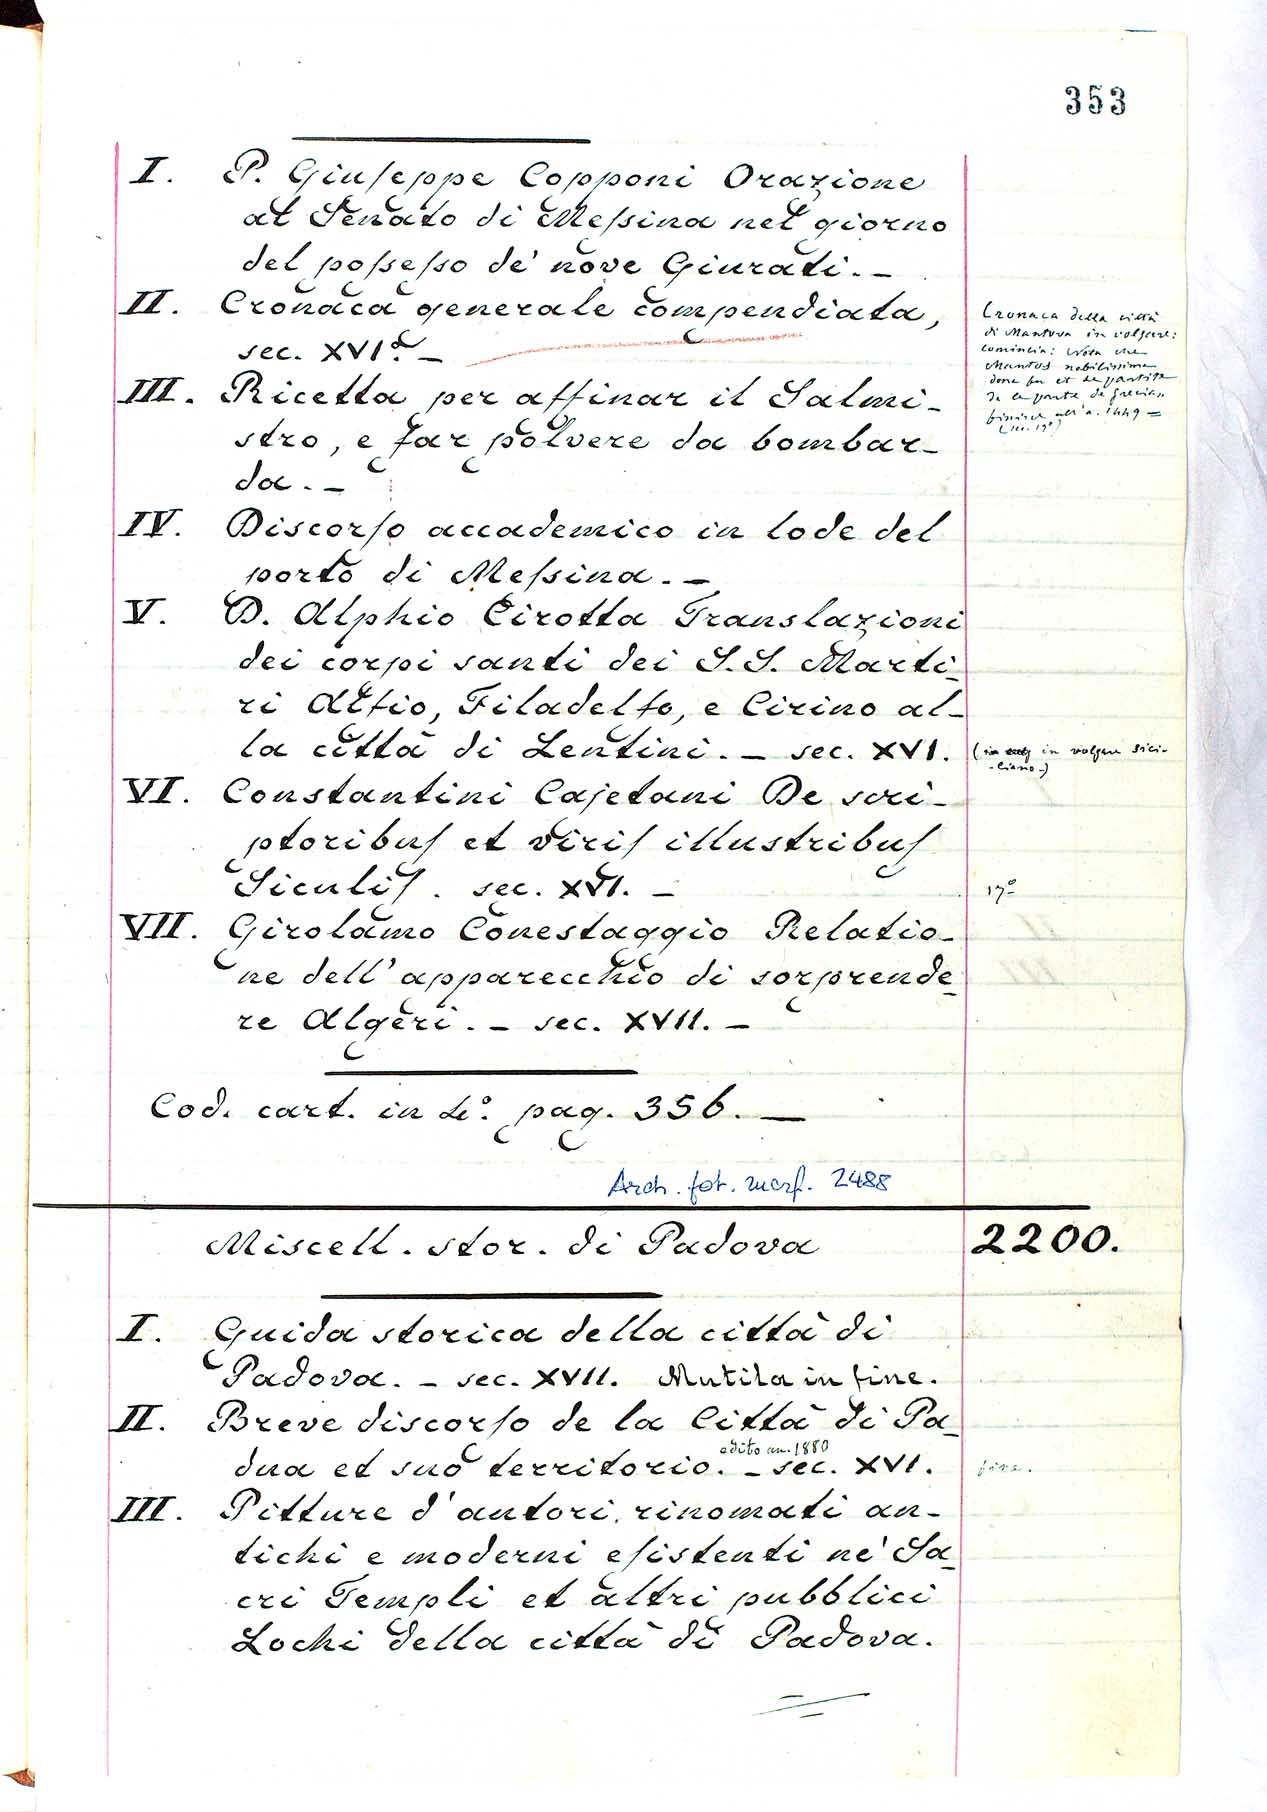 353
I. P. Giuseppe Copponi Orazione
al Senato di Messina nel giorno
del possesso de' nove Giurati. _
II. Cronaca generale compendiata,
sec. XVI.° _
Cronaca della città
di Mantova in volgare:
comincia: Nota che
Mantos nobilissima
dona fu et se partite
de le parte de grecia,
finisce all'a. 1449 =
(sec. 17°)
III. Ricetta per affinar il Salmi_
stro, e far polvere da bombar_
da. _
IV. Discorso accademico in lode del
porto di Messina. _
V. D. Alphio Cirotta Translazioni
dei corpi santi dei S.S. Marti_
ri Alfio, Filadelfo, e Cirino al_
la città di Lentini. _ sec. XVI. (in volgare sici-
liano.)
VI. Constantini Cajetani De scri_
ptoribus et viris illustribus
Siculis. sec. XVI. _ 17°
VII. Girolamo Conestaggio Relatio_
ne dell' apparecchio di sorprende_
re Algeri. _ sec. XVII. _
Cod. cart. in 4.° pag. 356. _
Arch. fot. merf. 2488
Miscell. stor. di Padova 2200.
I. Guida storica della città di
Padova. _ sec. XVII. Mutila in fine.
II. Breve discorso de la Città di Pa_
edito an. 1880
dua et suo territorio. _ sec. XVI. fine.
III. Pitture d' autori rinomati an_
tichi e moderni esistenti ne' Sa_
cri Templi et altri pubblici
Lochi della città di Padova.